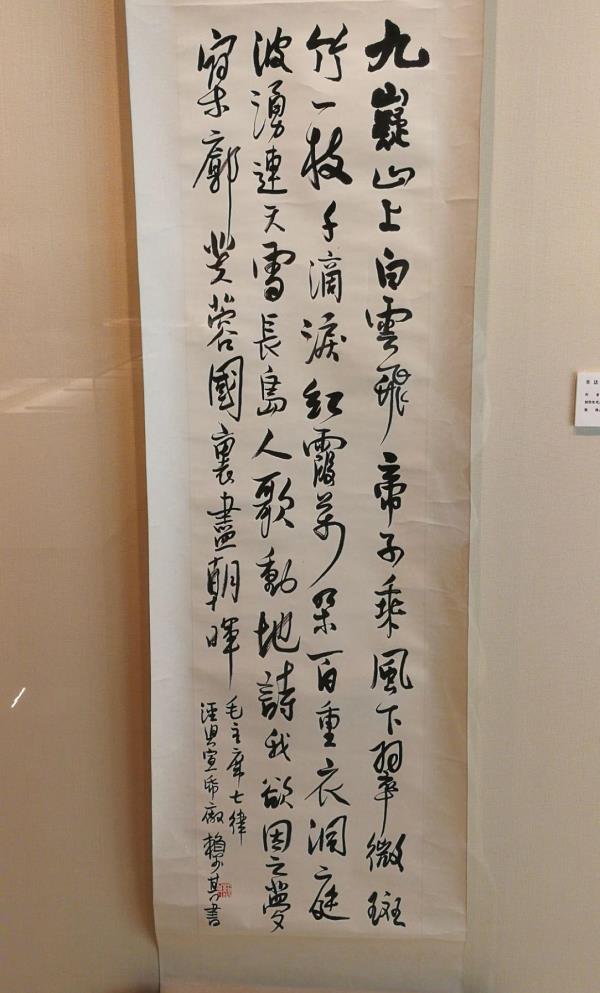 九嶷山上白雲飛帝子乘風下翠微斑
竹一枝千滴淚紅霞萬朵百重衣洞庭
波湧連天雪長島人歌動地詩我欲因之夢
寥廓芙蓉國裏盡朝暉
毛主席七律
涇縣宣帋廠賴少其書